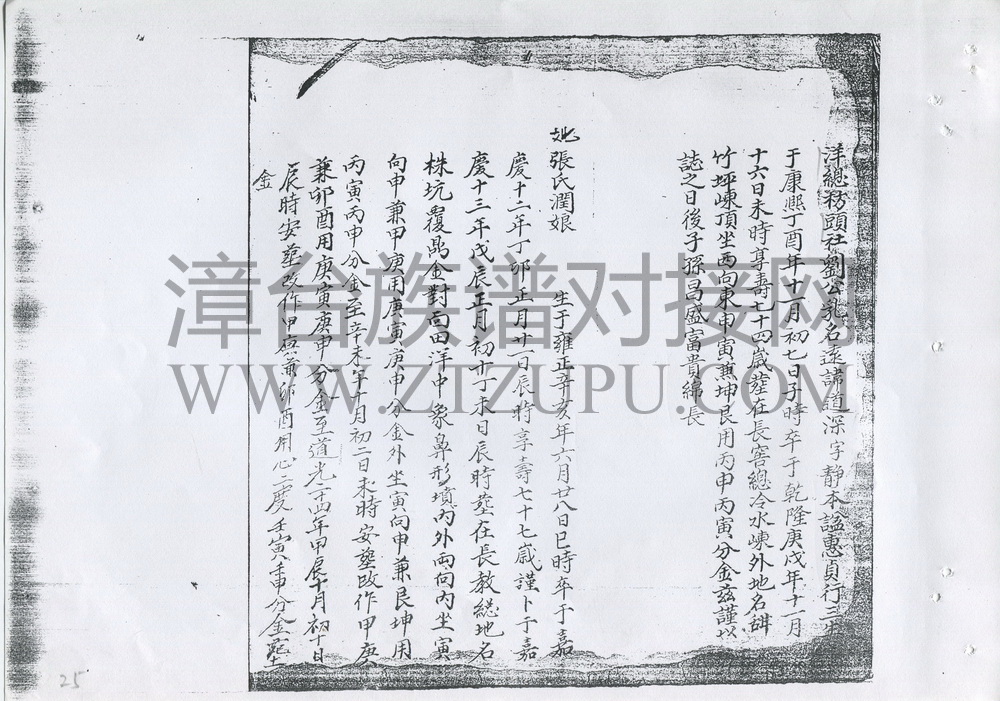 洋總務頭社劉公乳名遠諱道深字靜本諡惠貞行三生
于康熙丁酉年十一月初七日子時卒于乾隆庚戌年十一月
十六日未時享壽七十四歲塟在長窖總冷水崠外地名
竹坪崠頂坐西向東申寅兼坤艮用丙申丙寅分金茲謹以
誌之日後子孫昌盛富貴綿長
妣張氏潤娘
生于雍正辛亥年六月廿八日巳時卒于嘉
慶十二年丁卯正月廿一日辰時享壽七十七歲謹卜于嘉
慶十三年戊辰正月初十丁未日辰時塟在長教總地名
株坑覆鼎金對面田洋中象鼻形墳內外両向內坐寅
向申兼甲庚用庚寅庚申分金外坐寅向申兼艮坤用
丙寅丙申分金至辛未年十月初二日未時安塟改作甲庚
兼卯酉用庚寅庚申分金至道光二十四年甲辰十月初十日
辰時安塟改作甲庚兼卯酉用心二度壬寅壬申分金
金
漳台族谱对接网
WWW.ZTZUPU.COM
25